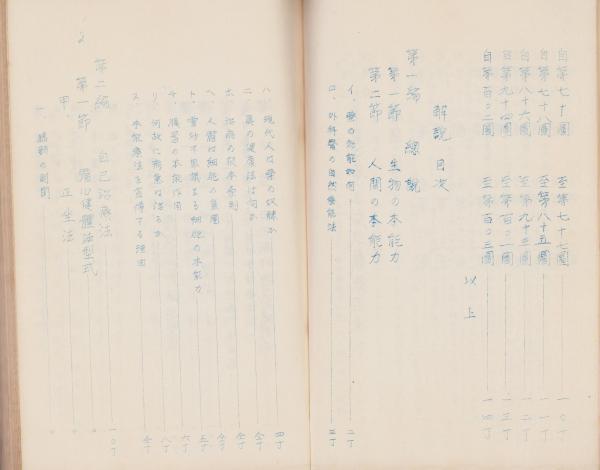 自第七十圖 至第七十七圖 一〇丁
自第七十八圖 至第八十五圖 一一丁
自第八十六圖 至第九十三圖 一二丁
自第九十四圖 至第百〇一圖 一三丁
自第百〇二圖 至第百〇三圖 一四丁
以上
解説目次
第一編 總説
第一節 生物の本能力
第二節 人間の本能力
イ、薬の効能如何 二丁
ロ、外科醫の自然療能法 三丁
ハ、現代人は薬の奴隷か 四丁
ニ、真の健康法は何か 仝丁
ホ、治病の根本原則 仝丁
ヘ、人體は細胞の集團 五丁
ト、霊妙不思議なる細胞の本能力 仝丁
チ、榮養の本能作用 六丁
リ、何故に病氣は治るか 八丁
ヌ、本能療法を首唱する理由 仝丁
第二編 自己治療法 一〇丁
第一節 體心健體法型式
甲、正坐法
一、